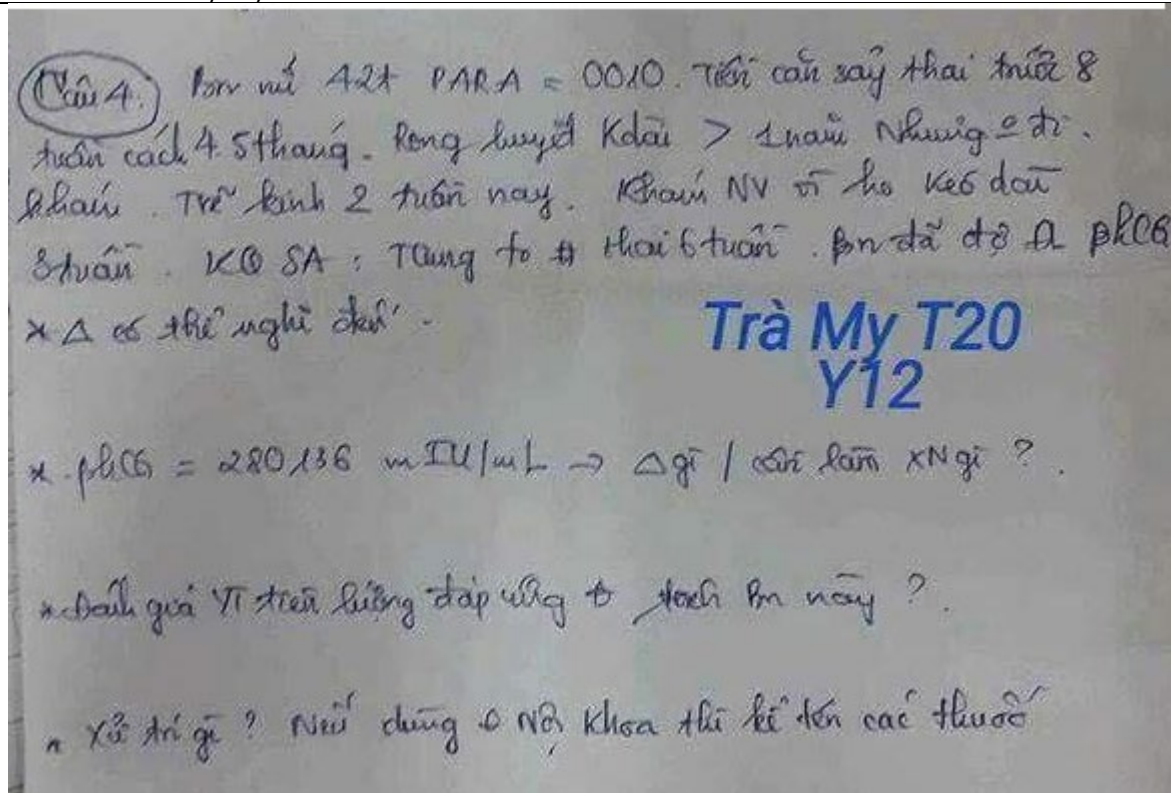 Câu 4. Bn nữ 42t PARA = 0010. Tiền căn sảy thai trước 8
tuần cách 4.5 tháng. Rong huyết Kdài > 1 năm Nhưng đi
khám. Trễ kinh 2 tuần nay. Khám NV vì ho kéo dài
3 tuần. KQ SA: TCung to # thai 6 tuần. Bn đã đc βhCG
* Δ có thể nghĩ đến.
Trà My T20
Y12
* βhCG = 280136 mIU/mL → Δ gì / cần làm XN gì ?
* Đánh giá YT tiên lượng đáp ứng Bn này ?
* Xử trí gì ? Nếu dùng Nội khoa thì kể tên các thuốc